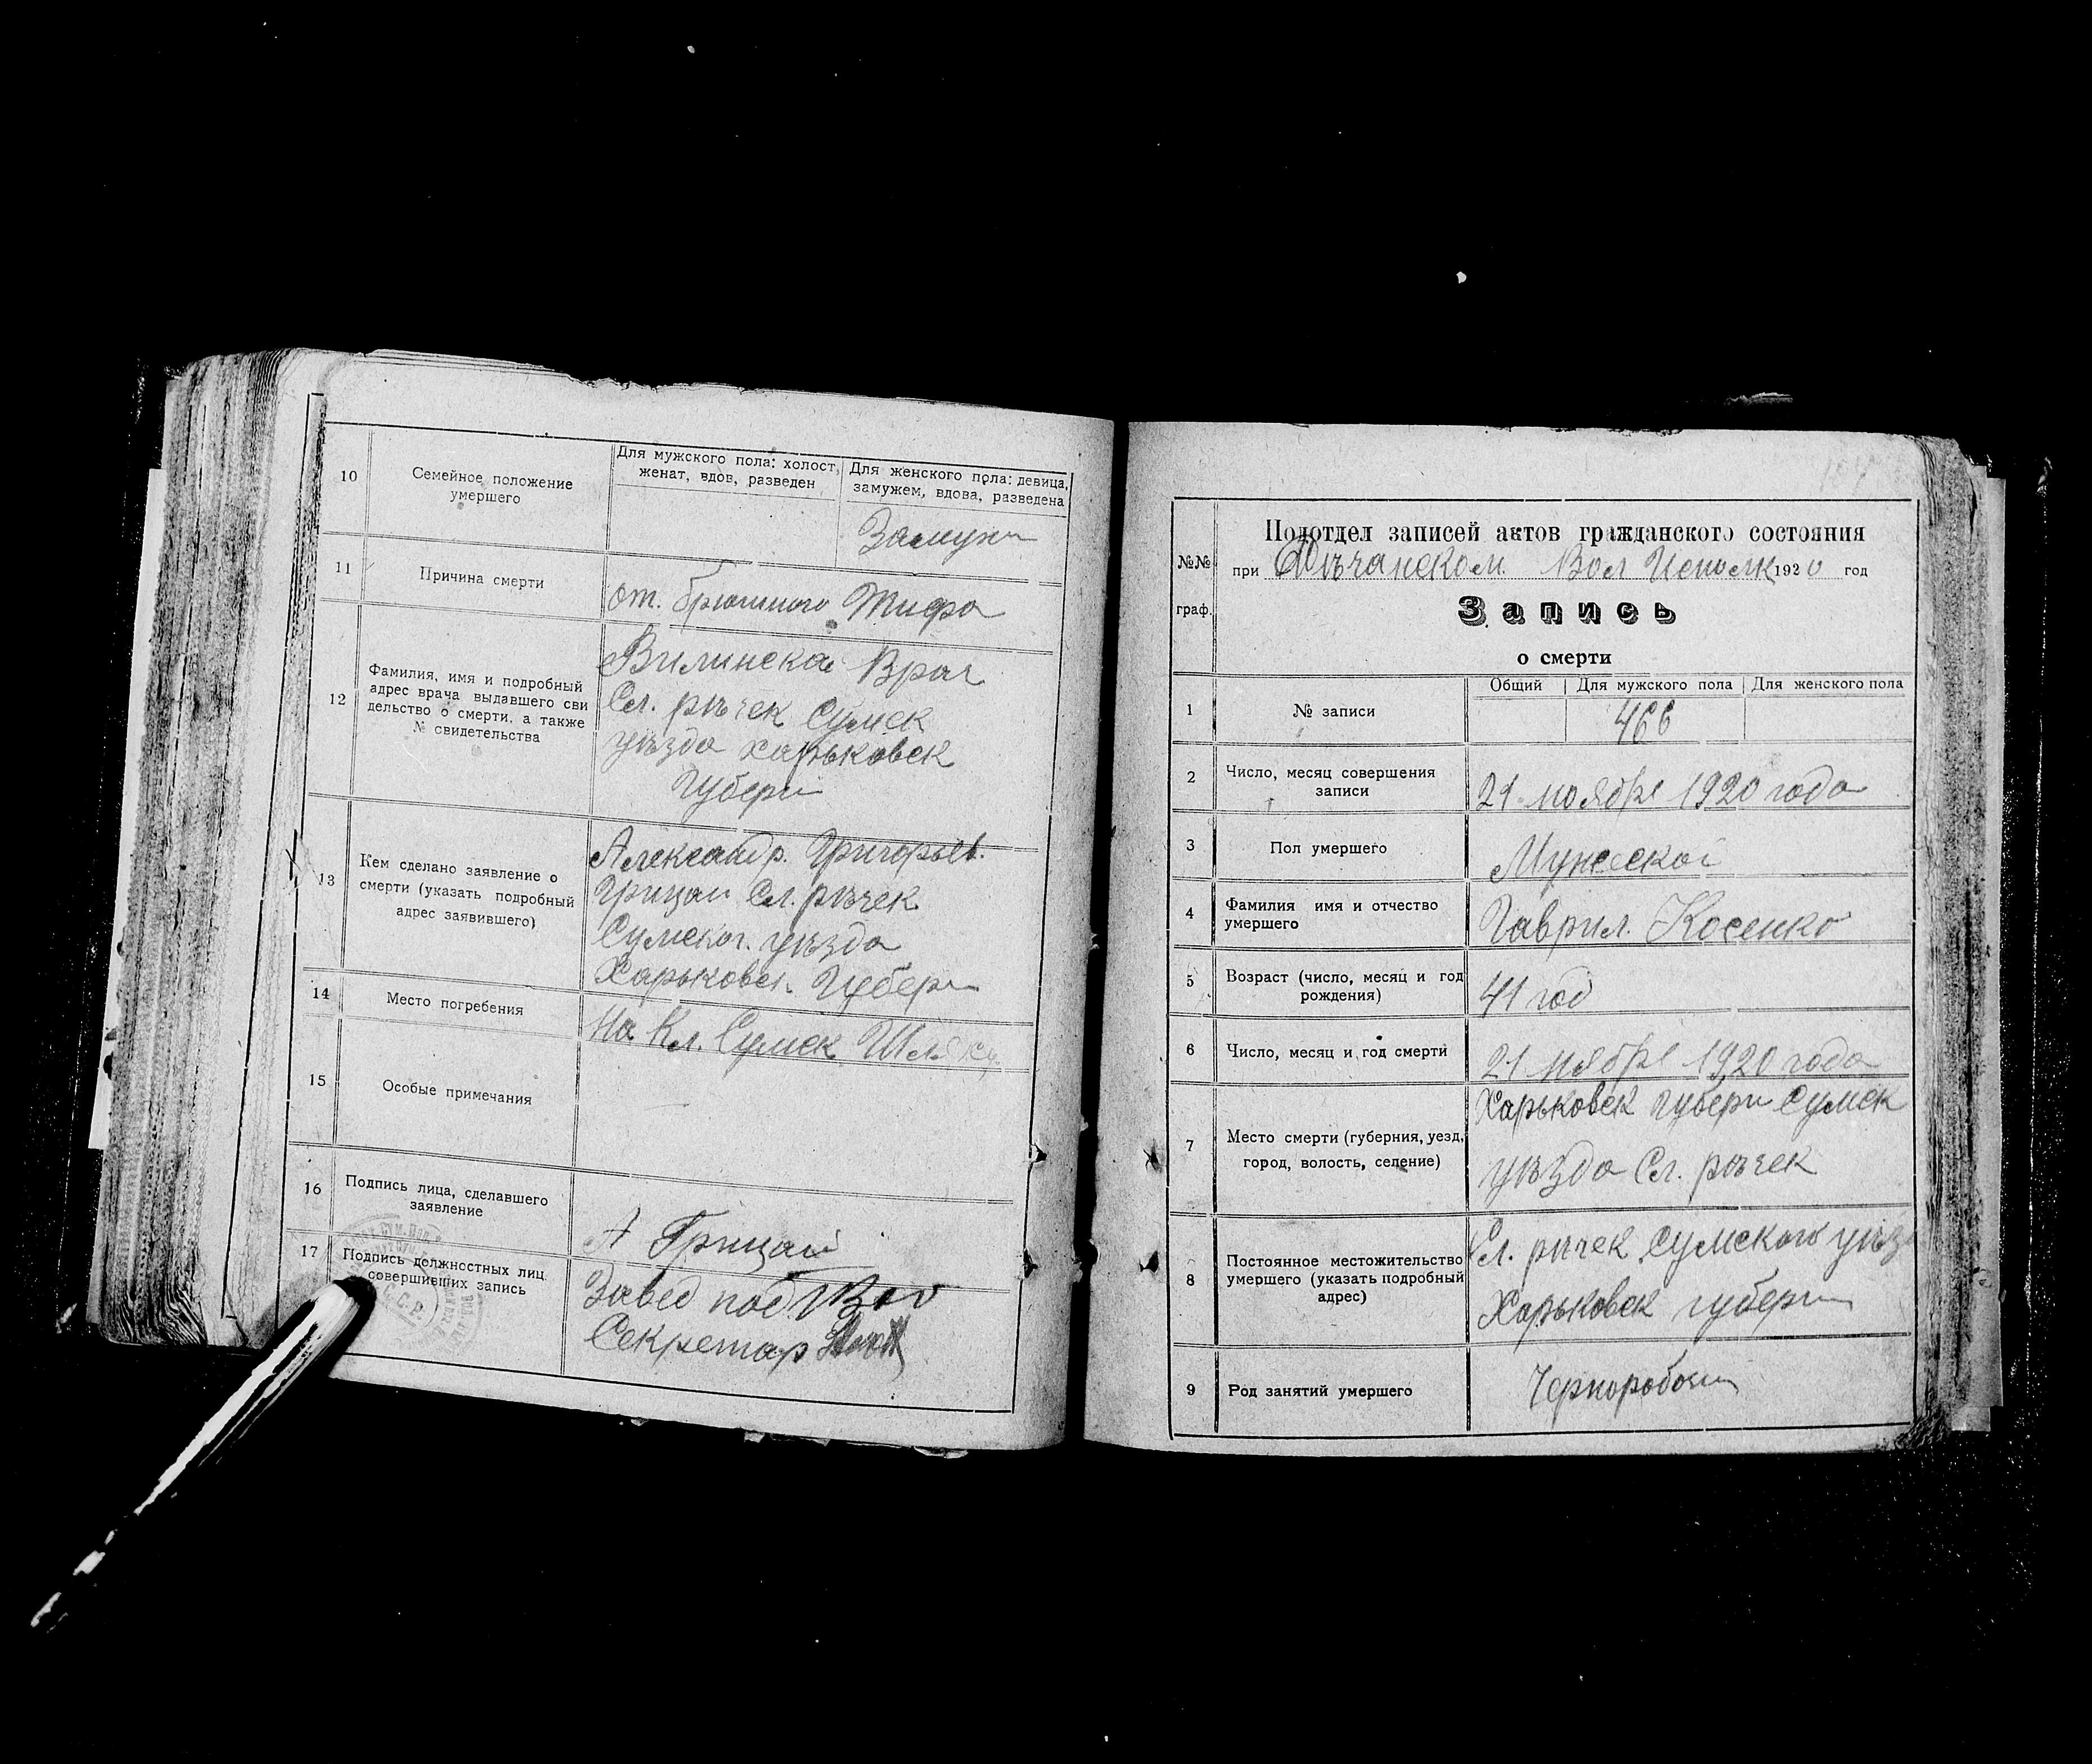 10
Семейное положение
умершего
Для мужского пола: холост,
женат, вдов, разведен
Для женского пола: девица,
замужем, вдова, разведена
Замужн
11
Причина смерти
от. брюшного Тифа
12
Фамилия, имя и подробный
адрес врача выдавшего сви
дельство о смерти, а также
№ свидетельства
Вилинска Врач
Сл. рѣчек Сумск
уѣзда харьковск
Губерн
13
Кем сделано заявление о
смерти (указать подробный
адрес заявившего)
Александр. Григорьев.
Грицай Сл. рѣчек
Сумског. уѣзда
Харьковск. Губерн
14
Место погребения
На Кл. Сумск Шляху
15
Особые примечания
16
Подпись лица, сделавшего
заявление
А Грицай
17
Подпись должностных лиц
совершивших запись
Завед под
Секретар
№№
граф.
Подотдел записей актов гражданского состояния
при Вол Исполк 1920 год
Запись
о смерти
1
№ записи
Общий
Для мужского пола
Для женского пола
466
2
Число, месяц совершения
записи
21 ноября 1920 года
3
Пол умершего
Мужеской
4
Фамилия имя и отчество
умершего
Гаврил. Косенко
5
Возраст (число, месяц и год
рождения)
41 год
6
Число, месяц и год смерти
21 ноября 1920 года
7
Место смерти (губерния, уезд,
город, волость, селение)
Харьковск губерн Сумск
уѣзда Сл. рѣчек
8
Постоянное местожительство
умершего (указать подробный
адрес)
Сл. рѣчек Сумского уѣз
Харьковск губерн
9
Род занятий умершего
Чернорабоч